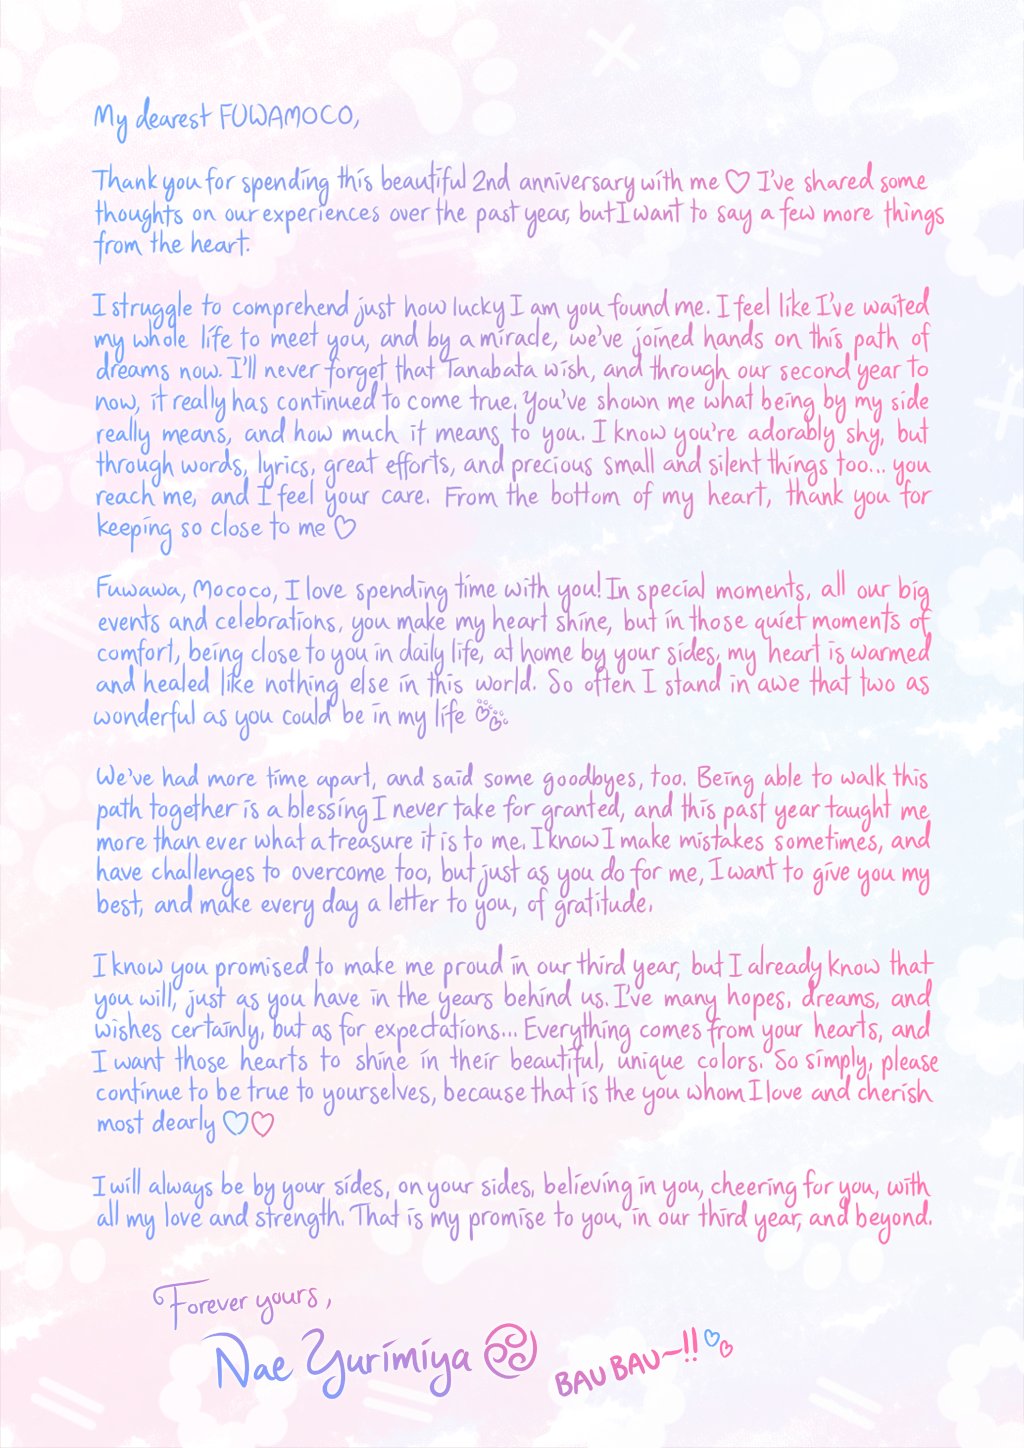 My dearest FUWAMOCO,
Thank you for spending this beautiful 2nd anniversary with me ♡ I've shared some
thoughts on our experiences over the past year, but I want to say a few more things
from the heart.
I struggle to comprehend just how lucky I am you found me. I feel like I've waited
my whole life to meet you, and by a miracle, we've joined hands on this path of
dreams now. I'll never forget that Tanabata wish, and through our second year to
now, it really has continued to come true. You've shown me what being by my side
really means, and how much it means to you. I know you're adorably shy, but
through words, lyrics, great efforts, and precious small and silent things too... you
reach me, and I feel your care. From the bottom of my heart, thank you for
keeping so close to me ♡
Fuwawa, Mococo, I love spending time with you! In special moments, all our big
events and celebrations, you make my heart shine, but in those quiet moments of
comfort, being close to you in daily life, at home by your sides, my heart is warmed
and healed like nothing else in this world. So often I stand in awe that two as
wonderful as you could be in my life 🐾
We've had more time apart, and said some goodbyes, too. Being able to walk this
path together is a blessing I never take for granted, and this past year taught me
more than ever what a treasure it is to me. I know I make mistakes sometimes, and
have challenges to overcome too, but just as you do for me, I want to give you my
best, and make every day a letter to you, of gratitude.
I know you promised to make me proud in our third year, but I already know that
you will, just as you have in the years behind us. I've many hopes, dreams, and
wishes certainly, but as for expectations... Everything comes from your hearts, and
I want those hearts to shine in their beautiful, unique colors. So simply, please
continue to be true to yourselves, because that is the you whom I love and cherish
most dearly ♡♡
I will always be by your sides, on your sides, believing in you, cheering for you, with
all my love and strength. That is my promise to you, in our third year, and beyond.
Forever yours,
Nae Yurimiya
BAU BAU~!! ♡♡